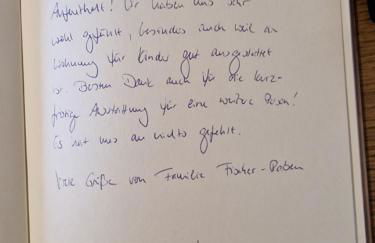 Aufenthalt! Wir haben uns sehr
wohl gefühlt, besonders auch weil die
Wohnung für Kinder gut ausgestattet
ist. Besten Dank auch für die kurz-
fristige Ausrüstung für eine weitere Person!
Es hat uns an nichts gefehlt.
Viele Grüße von Familie Fischer-